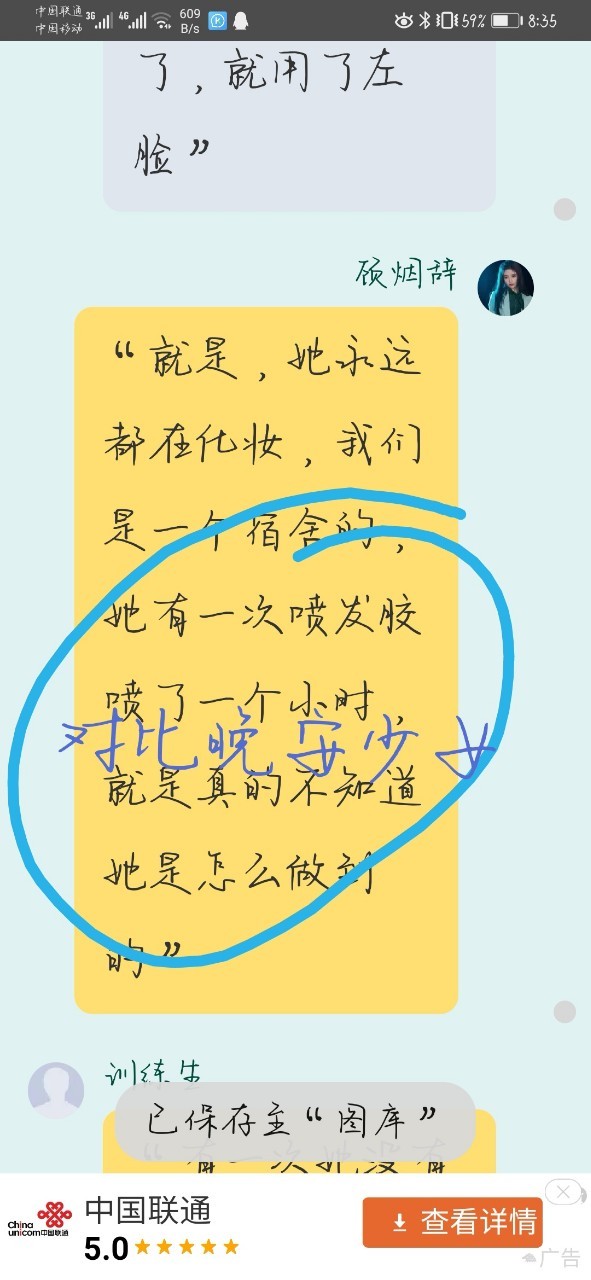 中国联通
中国移动
3G
4G
609
B/s
59%
8:35
了，就用了左
脸”
顾烟辞
“就是，她永远
都在化妆，我们
是一个宿舍的，
她有一次喷发胶
喷了一个小时，
对比晚安少女
就是真的不知道
她是怎么做到
的”
训练生
已保存至“图库”
“有一次她没有
China
unicom中国联通
中国联通
5.0
查看详情
广告